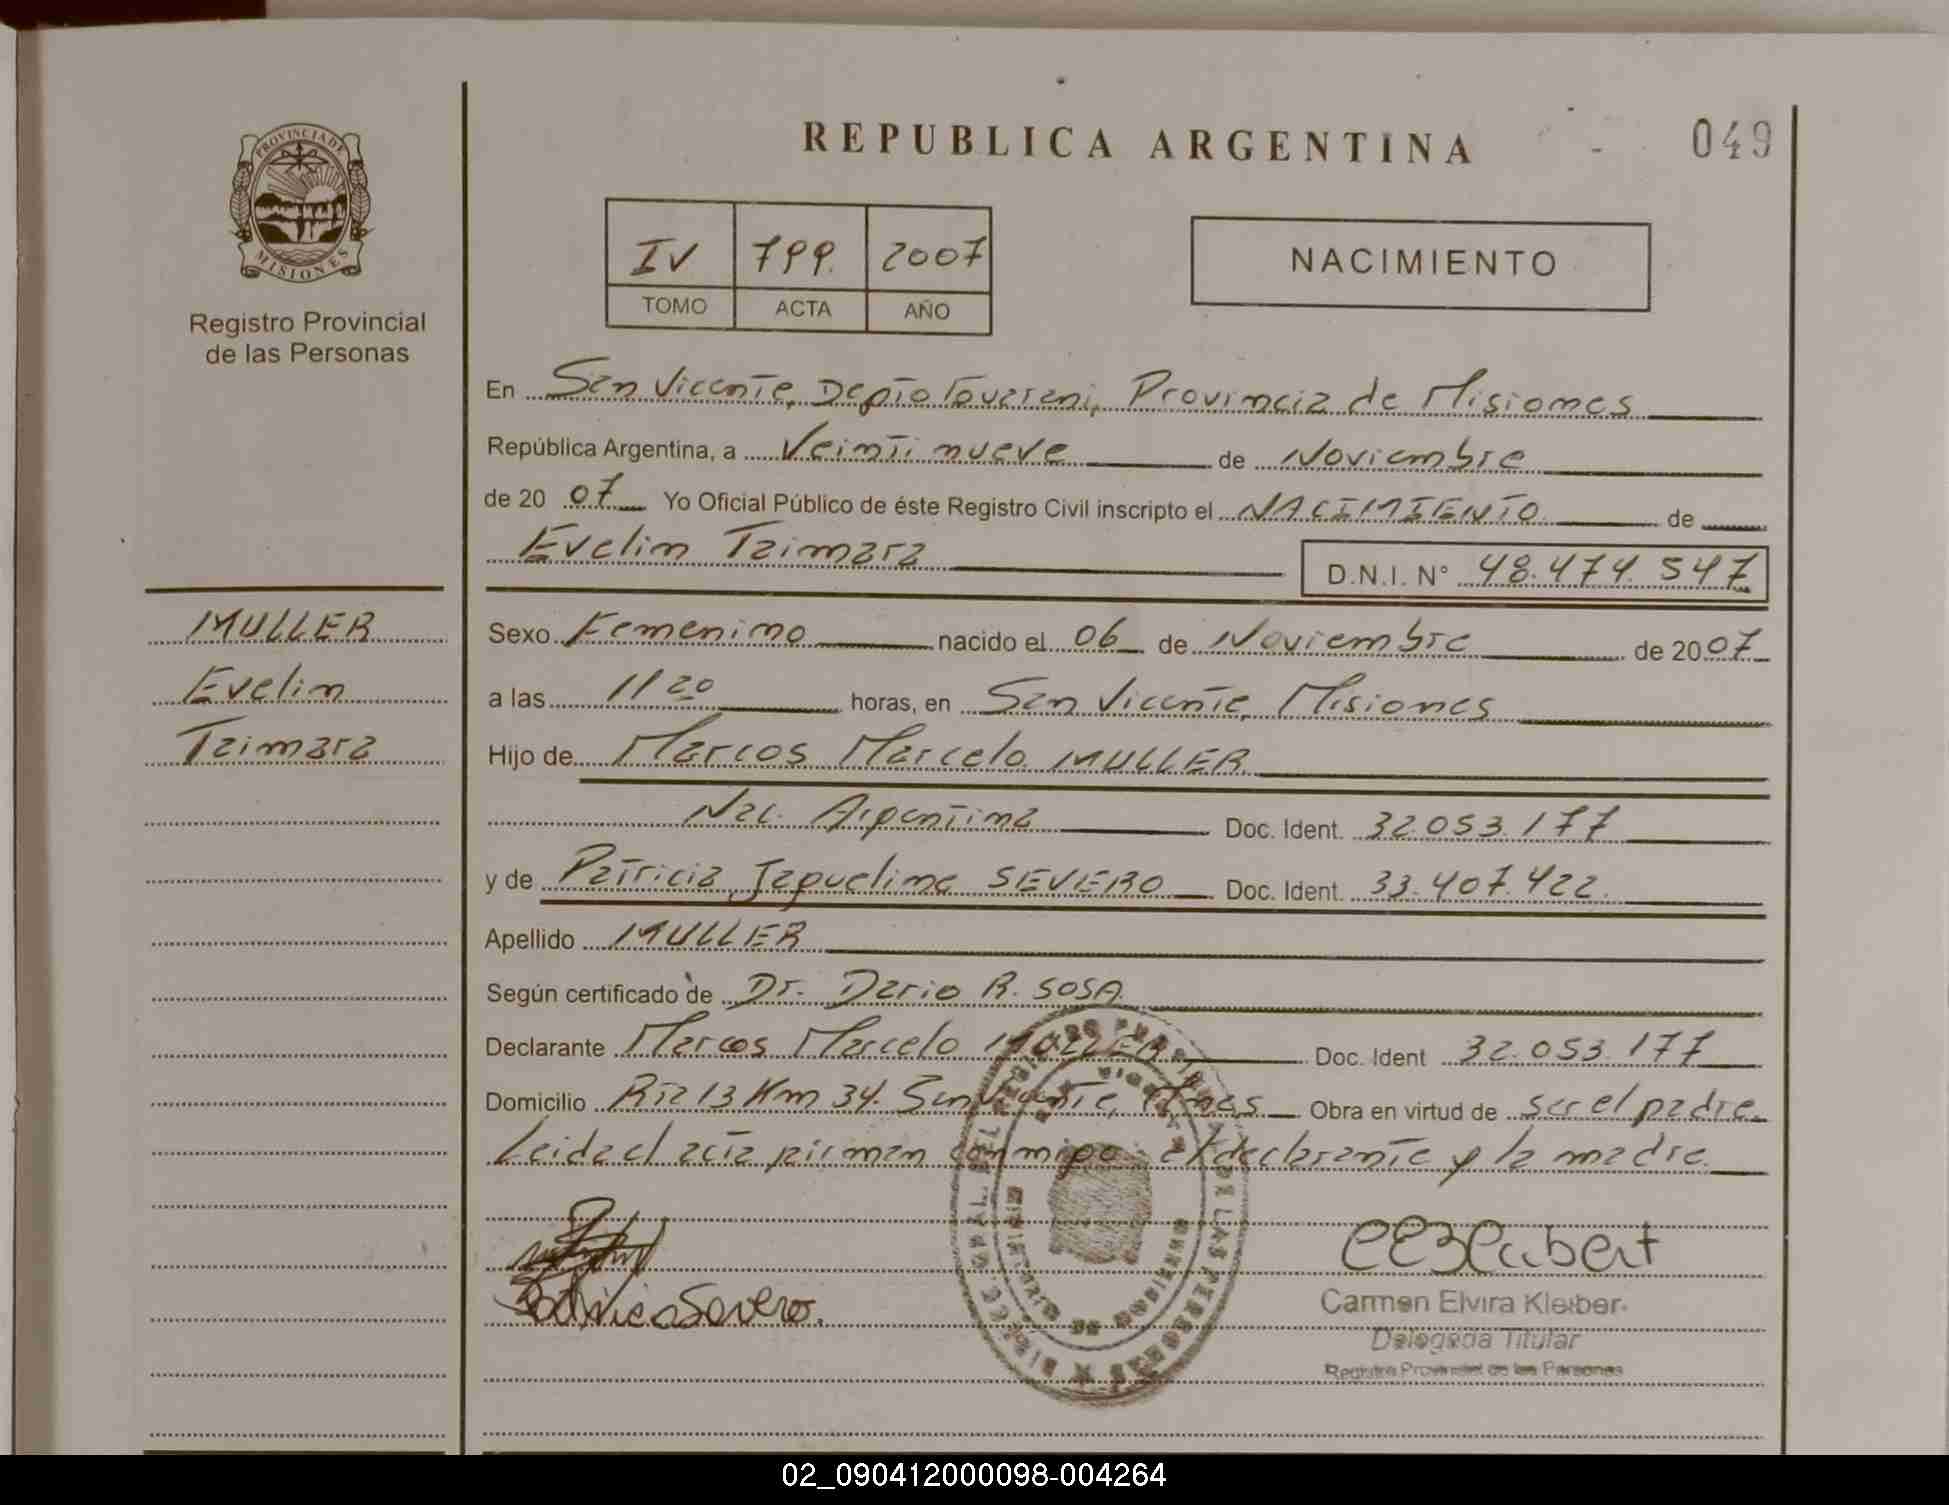 PROVINCIA DE
MISIONES
Registro Provincial
de las Personas
MULLER
Evelin
Taimara
REPUBLICA ARGENTINA
049
IV 799. 2007
TOMO ACTA AÑO
NACIMIENTO
En San Vicente, Depto Guarani, Provincia de Misiones
República Argentina, a Veinti nueve de Noviembre
de 20 07 Yo Oficial Público de éste Registro Civil inscripto el NACIMIENTO de
Evelin Taimara D.N.I. N° 48.474.547
Sexo Femenino nacido el 06 de Noviembre de 2007
a las 11 20 horas, en San Vicente, Misiones
Hijo de Marcos Marcelo MULLER
Nac. Argentina Doc. Ident. 32.053.177
y de Patricia Jaqueline SEVERO Doc. Ident. 33.407.422
Apellido MULLER
Según certificado de Dr. Dario R. SOSA
Declarante Marcos Marcelo MULLER Doc. Ident 32.053.177
Domicilio Rta 13 Km 34. San Vicente, Mnes Obra en virtud de ser el padre.
Leida el acta firman conmigo: el declarante y la madre.
Patricia Severo.
Carmen Elvira Kleiber
Delegada Titular
Registro Provincial de las Personas
02_090412000098-004264